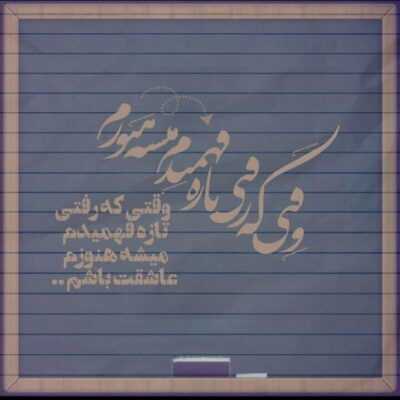 وقتی که رفتی تازه فهمیدم میشه هنوزم
وقتی که رفتی
تازه فهمیدم
میشه هنوزم
عاشقت باشم..